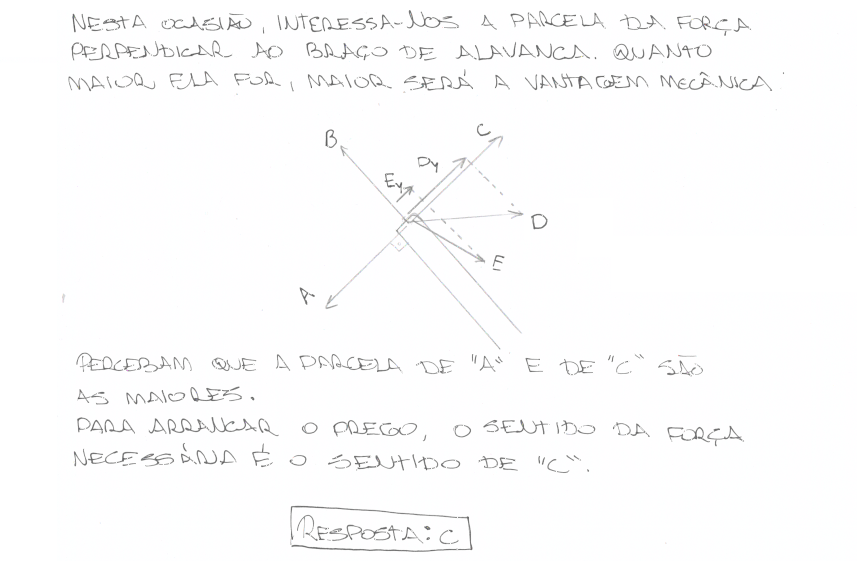 NESTA OCASIÃO, INTERESSA-NOS A PARCELA DA FORÇA
PERPENDICAR AO BRAÇO DE ALAVANCA. QUANTO
MAIOR ELA FOR, MAIOR SERÁ A VANTAGEM MECÂNICA
B
C
Dy
Ey
D
E
A
PERCEBAM QUE A PARCELA DE "A" E DE "C" SÃO
AS MAIORES.
PARA ARRANCAR O PREGO, O SENTIDO DA FORÇA
NECESSÁRIA É O SENTIDO DE "C".
RESPOSTA: C